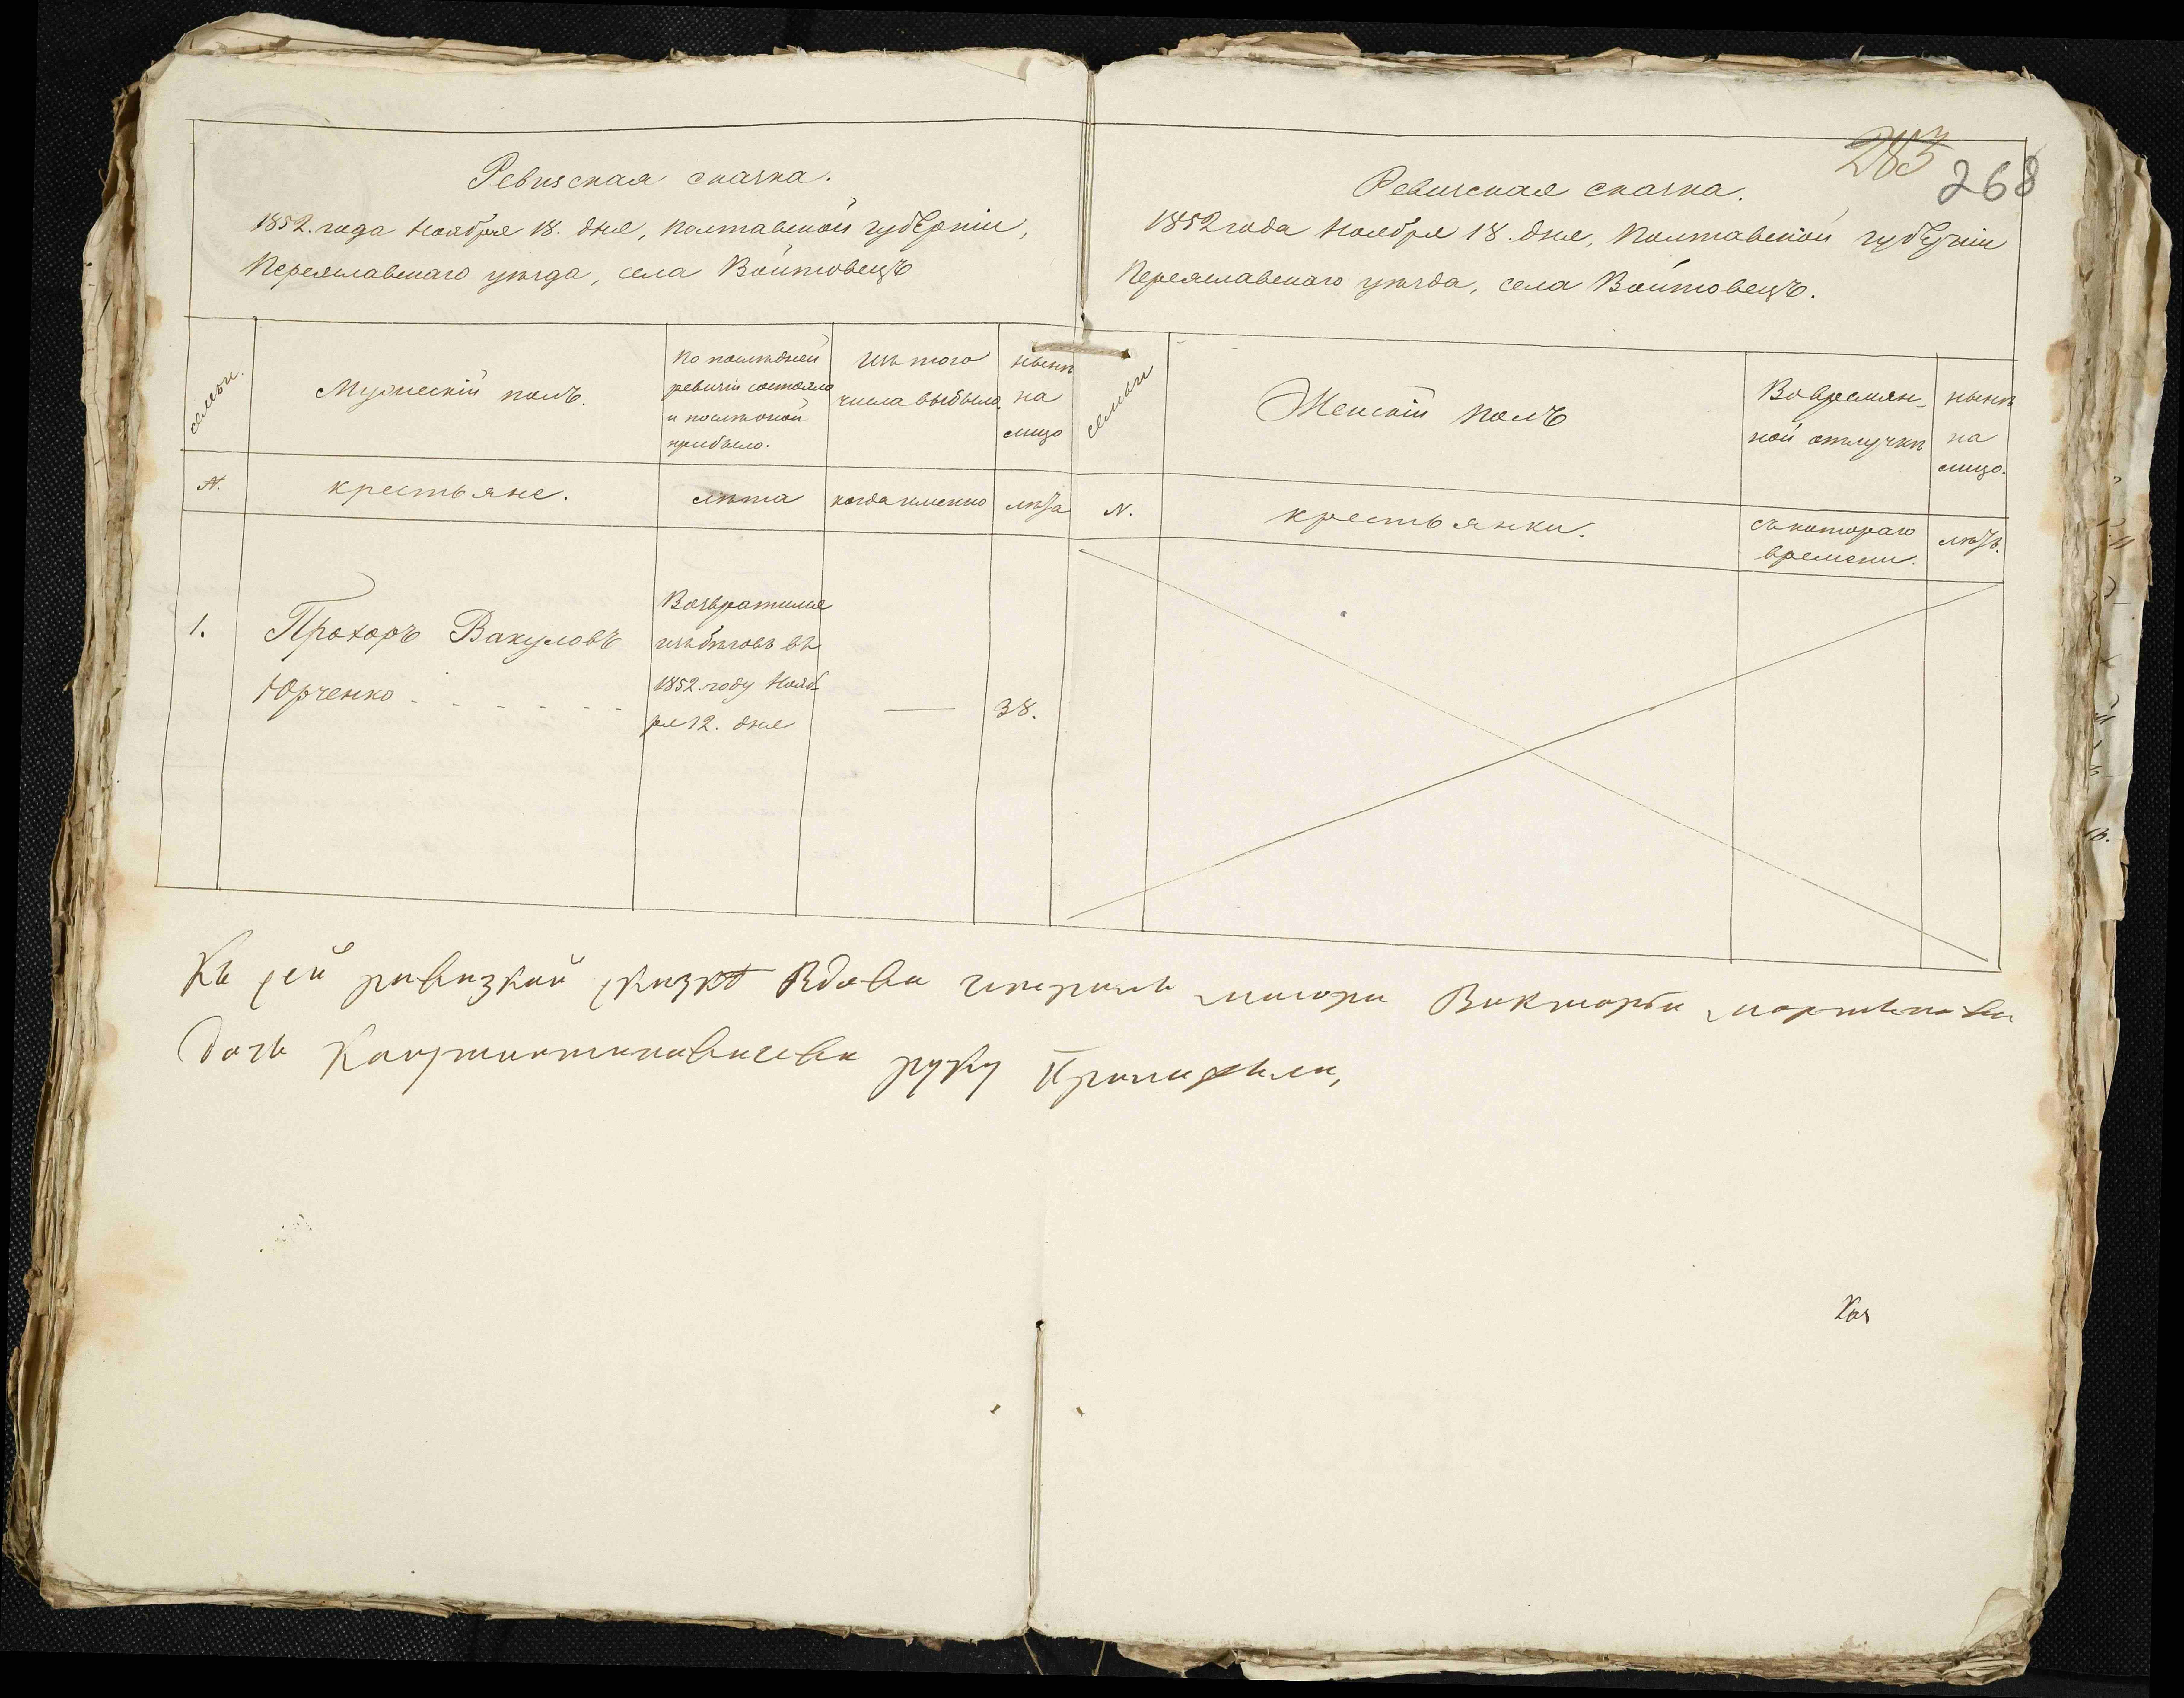 Ревизская сказка.
1852. года Ноября 18. дня, Полтавской губерніи,
Переяславскаго уѣзда, села Войтовецъ
семьи.
Мужескій полъ.
По послѣдней
ревизіи состояло
и послѣ оной
прибыло.
Изъ того
числа выбыло.
нынѣ
на
лицо
N.
крестьяне.
лѣта
когда именно
лѣта
1.
Прохоръ Вакуловъ
Юрченко
Возвратился
изъ бѣговъ въ
1852. году Нояб
ря 12. дня
—
38.
283
268
Ревизская сказка.
1852 года Ноября 18. дня, Полтавской губерніи
Переяславскаго уѣзда, села Войтовецъ.
семьи
Женскій полъ
Во времян-
ной отлучкѣ
нынѣ
на
лицо.
N.
крестьянки.
съ котораго
времени.
лѣтъ.
Къ сей ревизкой сказкѣ Вдова генералъ маиора Викторія мартинова
дочь Константиновичева руку Приложила,